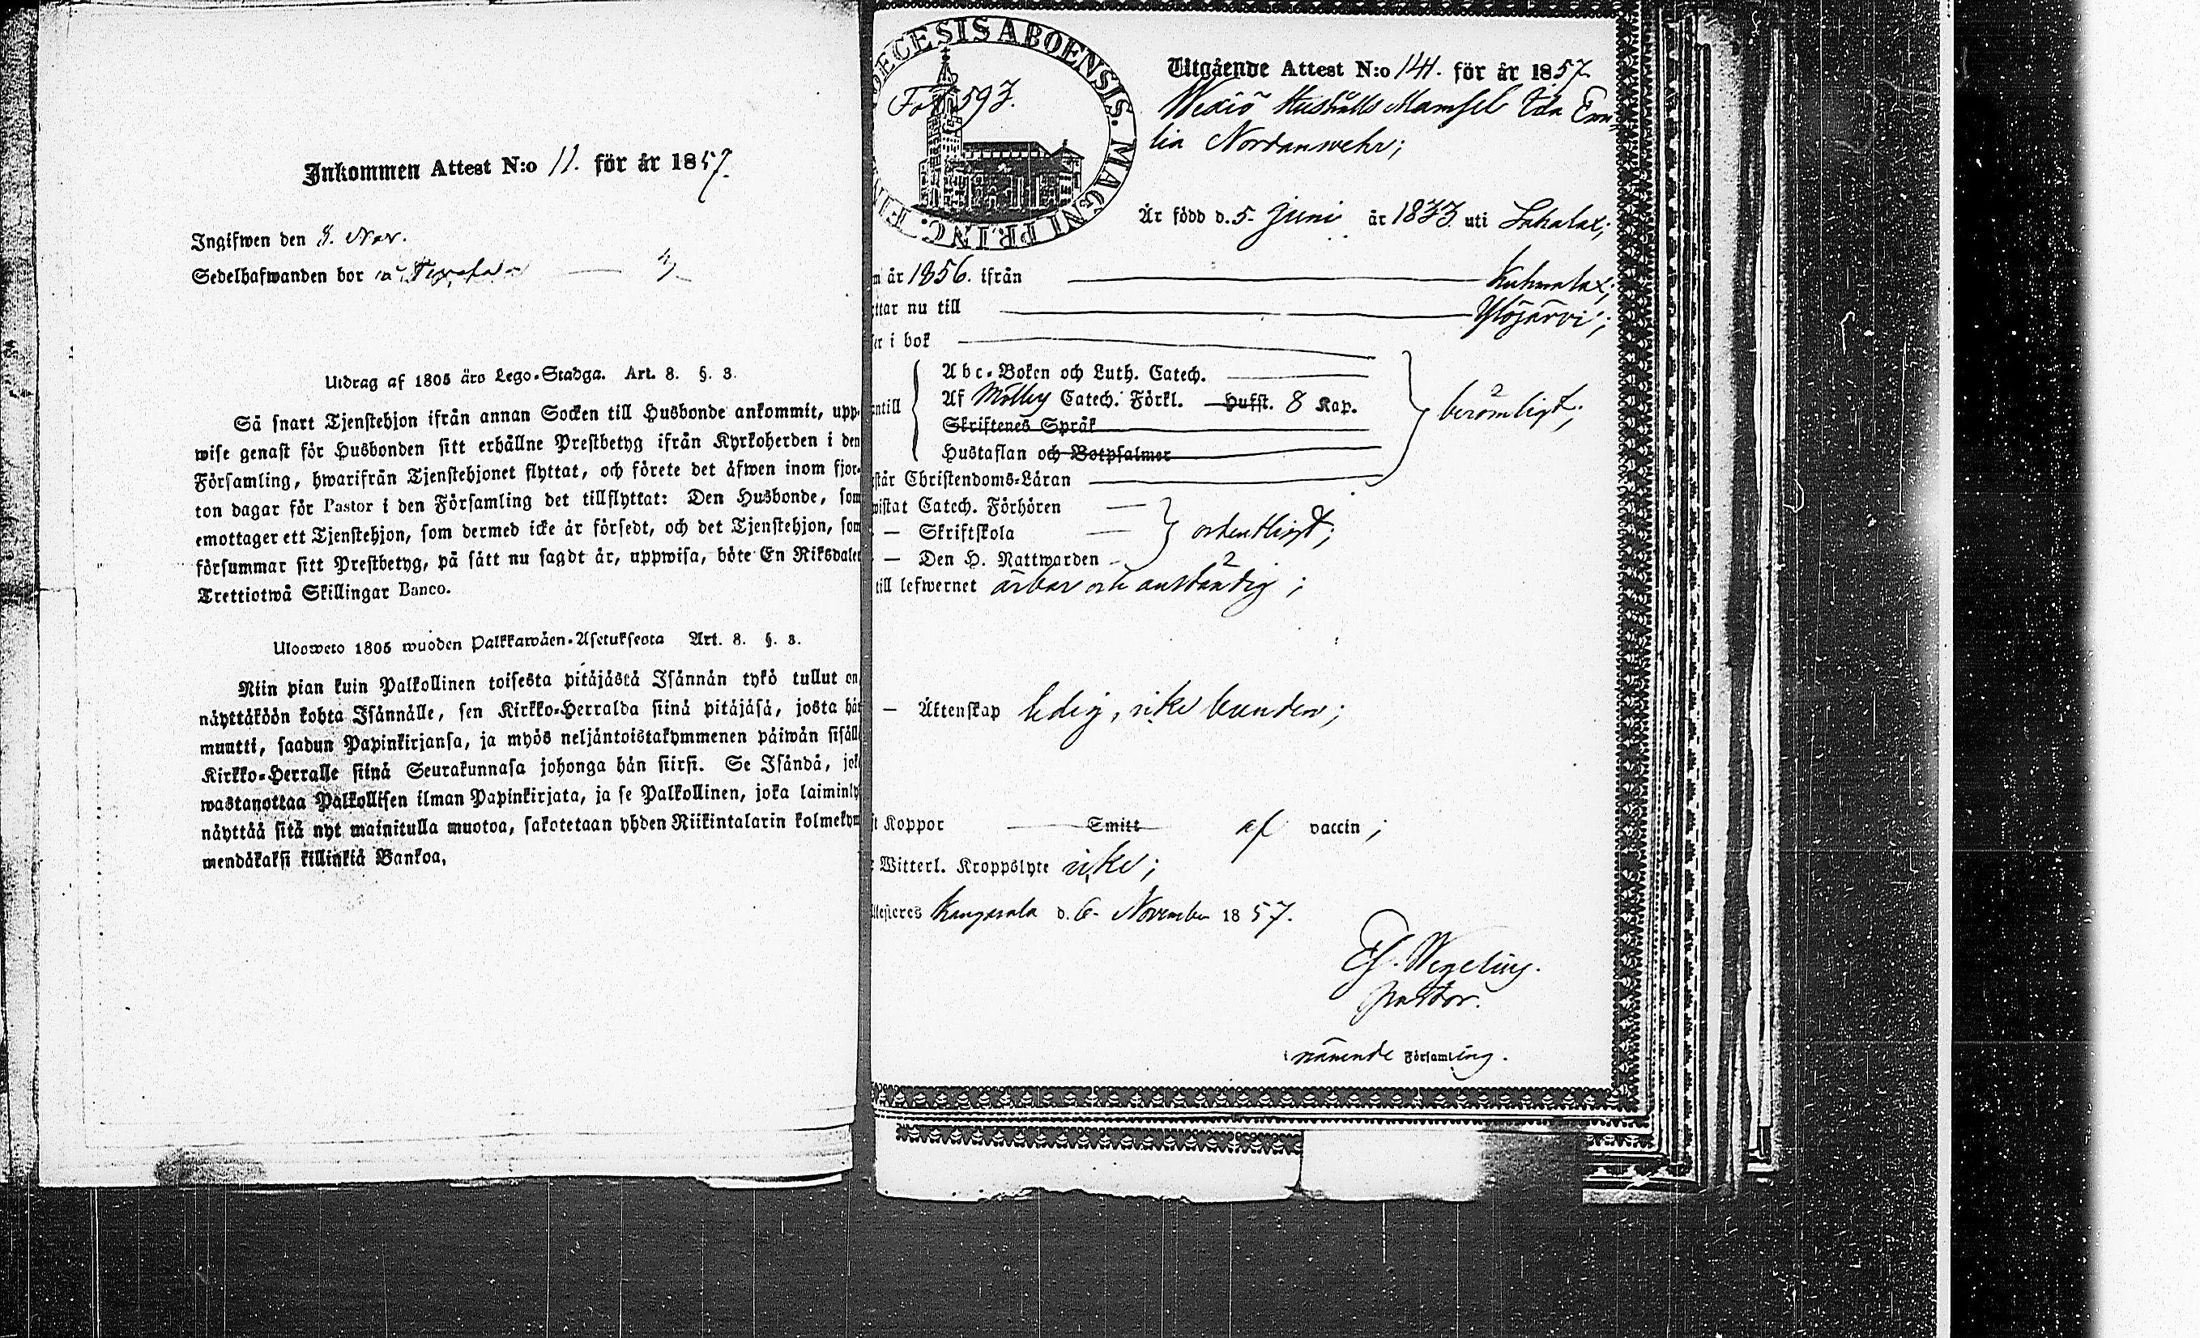 Inkommen Attest N:o 11. för år 1857.
Ingifwen den 8. Nov.
Sedelhafwanden bor
Utdrag af 1805 års Lego-Stadga. Art. 8. §. 3.
Så snart Tjenstehjon ifrån annan Socken till Husbonde ankommit, upp-
wise genast för Husbonden sitt erhållne Prestbetyg ifrån Kyrkoherden i den
Församling, hwarifrån Tjenstehjonet flyttat, och förete det äfwen inom fjor-
ton dagar för Pastor i den Församling det tillflyttat: Den Husbonde, som
emottager ett Tjenstehjon, som dermed icke är försedt, och det Tjenstehjon, som
försummar sitt Prestbetyg, på sätt nu sagdt är, uppwisa, böte En Riksdaler
Trettiotwå Skillingar Banco.
Ulosweto 1805 wuoden Palkkawäen-Asetuksesta Art. 8. §. 3.
Niin pian kuin Palkollinen toisesta pitäjästä Isännän tykö tullut on
näyttäköön kohta Isännälle, sen Kirkko-Herralda siinä pitäjäsä, josta hän
muutti, saadun Papinkirjansa, ja myös neljäntoistakymmenen päiwän sisäll
Kirkko-Herralle siinä Seurakunnasa johonga hän siirsi. Se Isändä, jok
wastanottaa Palkollisen ilman Papinkirjata, ja se Palkollinen, joka laiminly
näyttää sitä nyt mainitulla muotoa, sakotetaan yhden Riikintalarin kolmekym
mendäkaksi killinkiä Bankoa,
DECESIS ABOENSIS. MAGNI PRINC. FIN
Fol. 593.
Utgående Attest N:o 141. för år 1857.
Wexiö Hushålls Mamsell Ida Emi-
lia Nordanswehr;
Är född d. 5. Juni år 1833 uti Sahalax;
m år 1856. ifrån Kuhmalax;
ttar nu till Ylöjärvi;
er i bok
Abc-Boken och Luth. Catech.
ntill Af Möllers Catech. Förkl. Hufst. 8 Kap. berömligt;
Skriftenes Språk
Hustaflan och Botpsalmer
står Christendoms-Läran
wistat Catech. Förhören
— Skriftskola ordentligt;
— Den H. Nattwarden
till lefwernet ärbar och anständig;
— Äktenskap ledig, icke bunden;
t Koppor Smitt af vaccin;
Witterl. Kroppslyte icke;
ttesteres Kangasala d. 6. November 1857.
Wegelius.
Pastor.
i nämnde Församling.